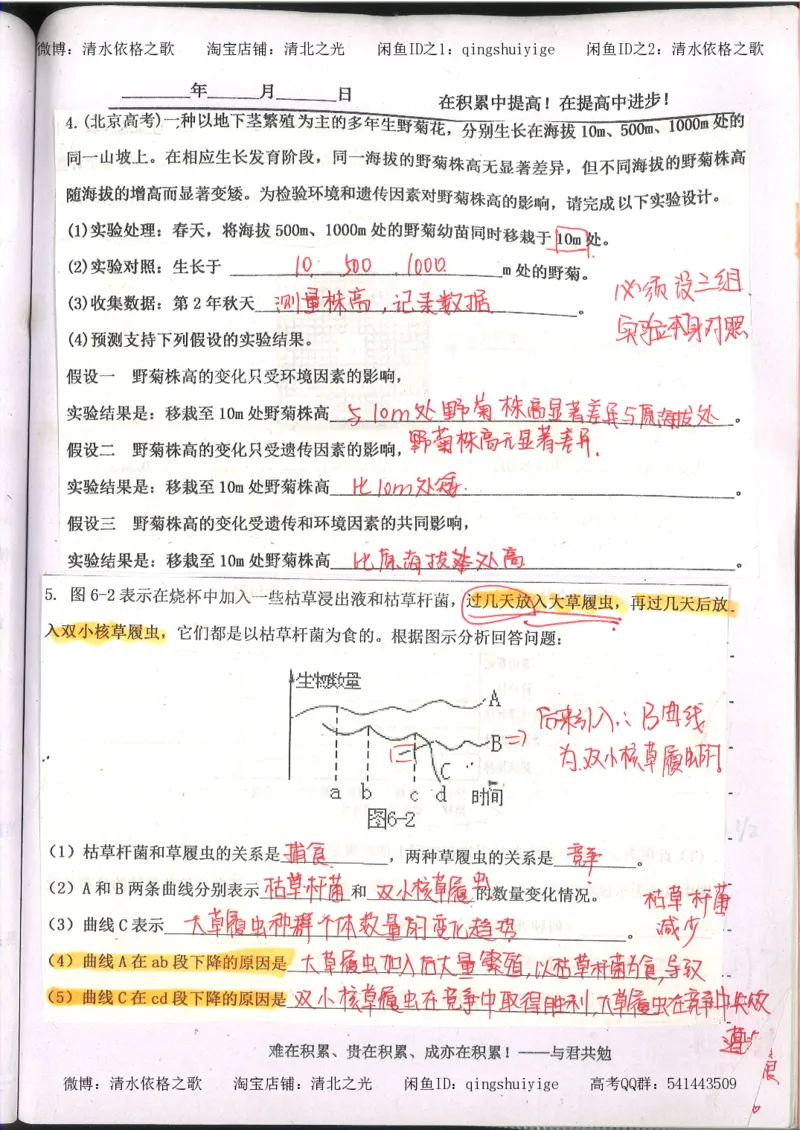 微博：清水依格之歌 淘宝店铺：清北之光 闲鱼ID之1：qingshuiyige 闲鱼ID之2：清水依格之歌
______年______月______日 在积累中提高！在提高中进步！
4.(北京高考)一种以地下茎繁殖为主的多年生野菊花，分别生长在海拔 10m、500m、1000m 处的
同一山坡上。在相应生长发育阶段，同一海拔的野菊株高无显著差异，但不同海拔的野菊株高
随海拔的增高而显著变矮。为检验环境和遗传因素对野菊株高的影响，请完成以下实验设计。
(1)实验处理：春天，将海拔 500m、1000m 处的野菊幼苗同时移栽于 10m 处。
(2)实验对照：生长于 10. 500 .1000. m 处的野菊。
必须设三组.
(3)收集数据：第 2 年秋天 测量株高，记录数据。
实验本身对照
(4)预测支持下列假设的实验结果。
假设一 野菊株高的变化只受环境因素的影响，
实验结果是：移栽至 10m 处野菊株高 与10m处野菊株高显著差异与原海拔处。
野菊株高无显著差异.
假设二 野菊株高的变化只受遗传因素的影响，
实验结果是：移栽至 10m 处野菊株高 比10m处矮.。
假设三 野菊株高的变化受遗传和环境因素的共同影响，
实验结果是：移栽至 10m 处野菊株高 比原海拔处高。
5. 图 6-2 表示在烧杯中加入一些枯草浸出液和枯草杆菌，过几天放入大草履虫，再过几天后放
入双小核草履虫，它们都是以枯草杆菌为食的。根据图示分析回答问题：
生物数量
A
后来引入∴B曲线
B ⇒
为双小核草履虫的.
C
a b c d 时间
图6-2
（1）枯草杆菌和草履虫的关系是 捕食，两种草履虫的关系是 竞争。
（2）A 和 B 两条曲线分别表示 枯草杆菌 和 双小核草履虫 的数量变化情况。
枯草杆菌
（3）曲线 C 表示 大草履虫种群个体数量的变化趋势。
减少
（4）曲线 A 在 ab 段下降的原因是 大草履虫加入后大量繁殖，以枯草杆菌为食，导致
（5）曲线 C 在 cd 段下降的原因是 双小核草履虫在竞争中取得胜利，大草履虫在竞争中失败
难在积累、贵在积累、成亦在积累！——与君共勉
微博：清水依格之歌 淘宝店铺：清北之光 闲鱼ID：qingshuiyige 高考QQ群：541443509